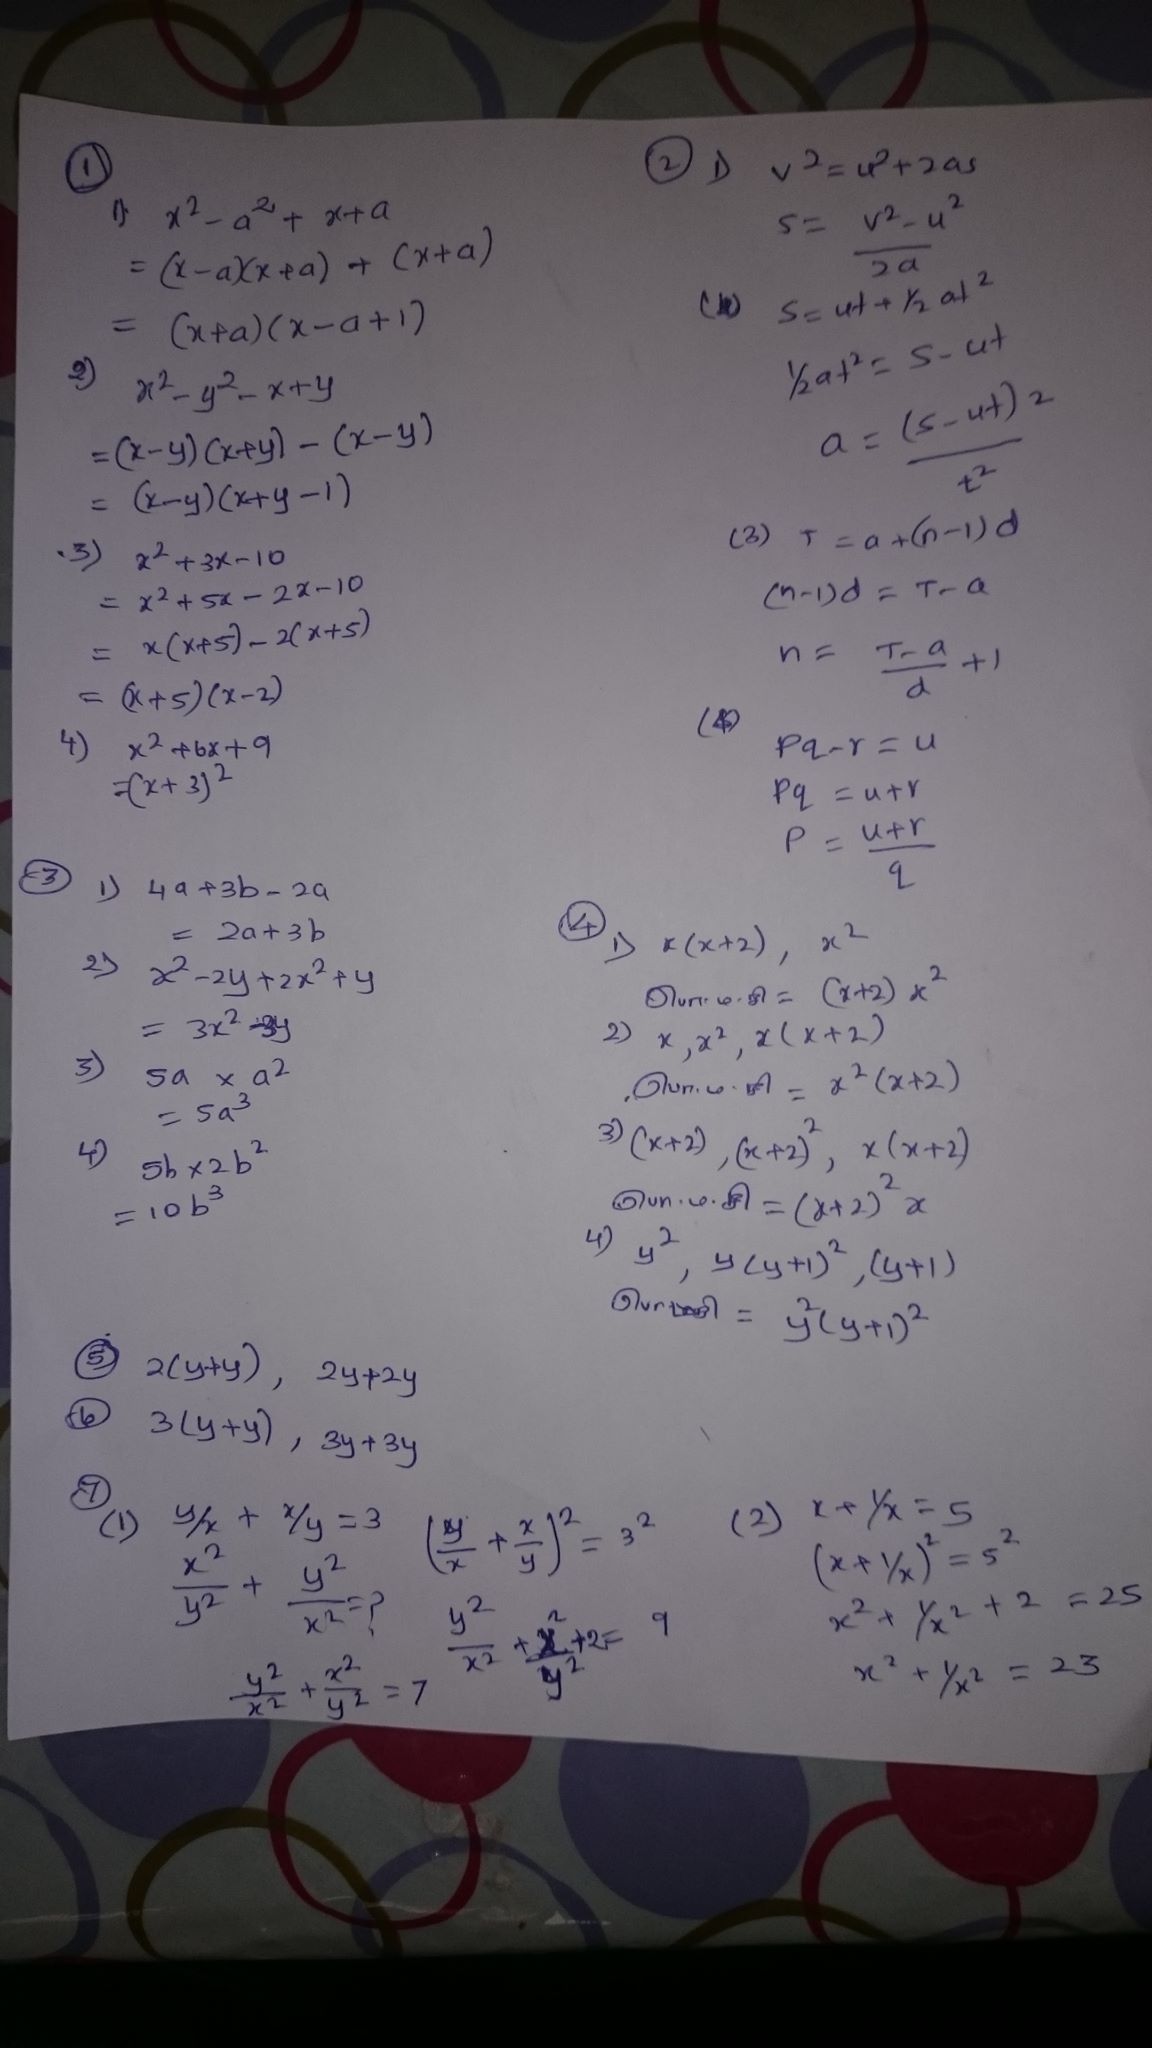 ①
1) x² - a² + x + a
= (x-a)(x+a) + (x+a)
= (x+a)(x-a+1)
2) x² - y² - x + y
= (x-y)(x+y) - (x-y)
= (x-y)(x+y-1)
3) x² + 3x - 10
= x² + 5x - 2x - 10
= x(x+5) - 2(x+5)
= (x+5)(x-2)
4) x² + 6x + 9
= (x+3)²
② 1) v² = u² + 2as
s = (v² - u²)/2a
s = ut + ½ at²
½at² = s - ut
a = (s - ut)2/t²
(3) T = a + (n-1)d
(n-1)d = T - a
n = (T - a)/d + 1
Pq - r = u
Pq = u + r
P = (u + r)/q
③ 1) 4a + 3b - 2a
= 2a + 3b
2) x² - 2y + 2x² + y
= 3x² - y
3) 5a x a²
= 5a³
4) 5b x 2b²
= 10b³
④ 1) x(x+2), x²
பொ.ம.சி = (x+2) x²
2) x, x², x(x+2)
பொ.ம.சி = x²(x+2)
3) (x+2), (x+2)², x(x+2)
பொ.ம.சி = (x+2)² x
4) y², y(y+1)², (y+1)
= y²(y+1)²
⑤ 2(y+y), 2y+2y
⑥ 3(y+y), 3y+3y
⑦
(1) y/x + x/y = 3
x²/y² + y²/x² = ?
(y/x + x/y)² = 3²
y²/x² + x²/y² + 2 = 9
y²/x² + x²/y² = 7
(2) x + 1/x = 5
(x + 1/x)² = 5²
x² + 1/x² + 2 = 25
x² + 1/x² = 23